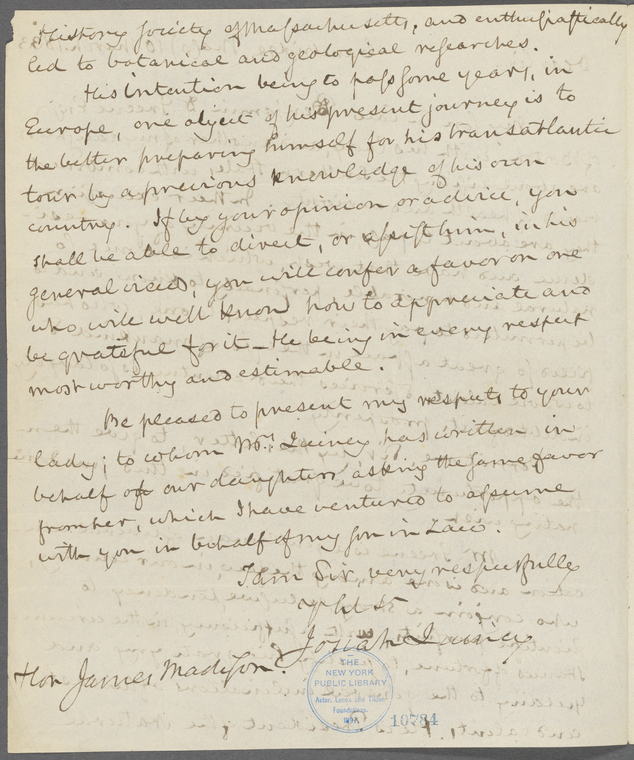 History Society of Massachusetts, and enthusiastically
led to botanical and geological researches.
His intention being to pass some years, in
Europe, one object of his present journey is to
the better preparing himself for his transatlantic
tour by a previous knowledge of his own
country. If by your opinion or advice, you
shall be able to direct, or assist him, in his
general views, you will confer a favor on one
who will well know how to appreciate and
be grateful for it – He being in every respect
most worthy and estimable.
Be pleased to present my respects to your
lady; to whom Mrs. Quincy has written in
behalf of our daughter asking the same favor
from her, which I have ventured to assume
with you in behalf of my son in Law.
I am Sir, very respectfully
Josiah Quincy
Hon James Madison.
THE
NEW YORK
PUBLIC LIBRARY
Astor, Lenox and Tilden
Foundations.
10784